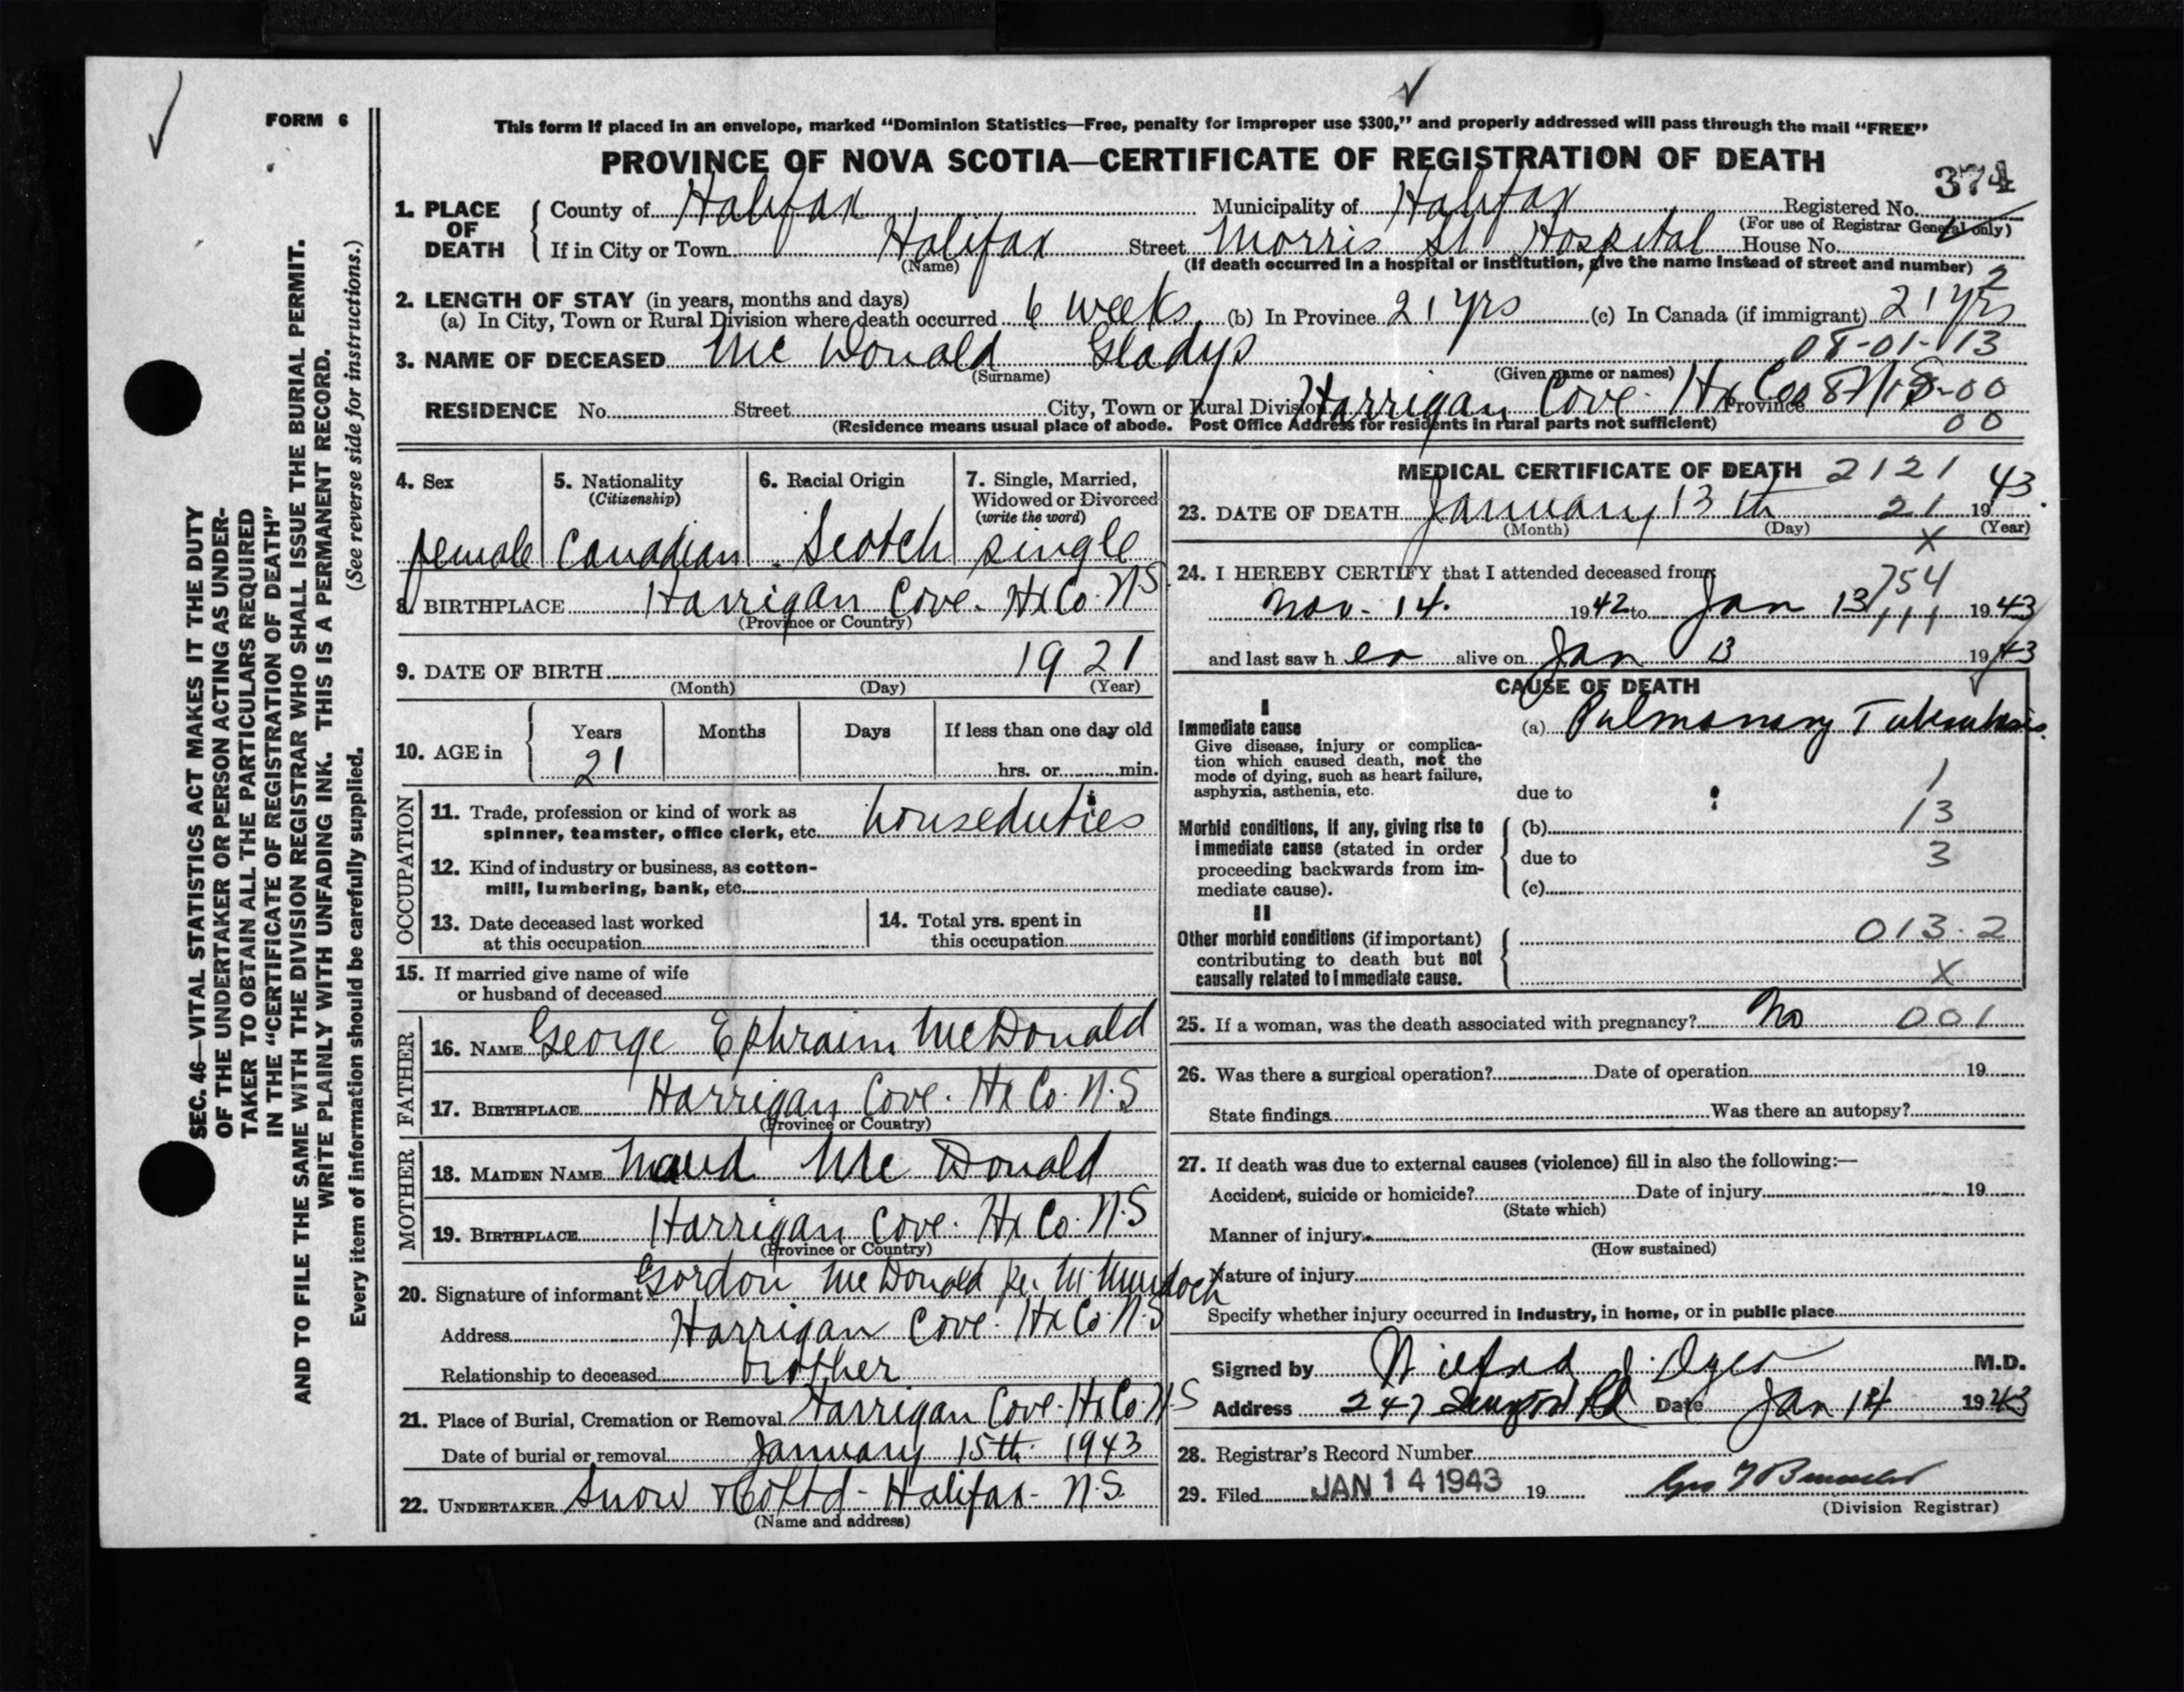 FORM 6
This form if placed in an envelope, marked "Dominion Statistics—Free, penalty for improper use $300," and properly addressed will pass through the mail "FREE"
PROVINCE OF NOVA SCOTIA—CERTIFICATE OF REGISTRATION OF DEATH
374
1. PLACE OF DEATH { County of Halifax Municipality of Halifax Registered No.
(For use of Registrar General only)
If in City or Town Halifax Street Morris St Hospital House No.
(Name) (If death occurred in a hospital or institution, give the name instead of street and number) 2
2. LENGTH OF STAY (in years, months and days)
(a) In City, Town or Rural Division where death occurred 6 weeks (b) In Province 21 yrs (c) In Canada (if immigrant) 21 yrs
08-01-13
3. NAME OF DECEASED Mc Donald Gladys
(Surname) (Given name or names)
RESIDENCE No. Street City, Town or Rural Division Harrigan Cove. Hx Co Province N.S
00
(Residence means usual place of abode. Post Office Address for residents in rural parts not sufficient) 00
4. Sex 5. Nationality (Citizenship) 6. Racial Origin 7. Single, Married, Widowed or Divorced (write the word)
female Canadian Scotch single
8. BIRTHPLACE Harrigan Cove. Hx Co. N.S
(Province or Country)
9. DATE OF BIRTH 1921
(Month) (Day) (Year)
10. AGE in { Years Months Days If less than one day old
21 hrs. or min.
OCCUPATION
11. Trade, profession or kind of work as
spinner, teamster, office clerk, etc. houseduties
12. Kind of industry or business, as cotton-
mill, lumbering, bank, etc.
13. Date deceased last worked
at this occupation
14. Total yrs. spent in
this occupation
15. If married give name of wife
or husband of deceased
FATHER
16. NAME George Ephraim McDonald
17. BIRTHPLACE Harrigan Cove. Hx Co. N.S
(Province or Country)
MOTHER
18. MAIDEN NAME Maud Mc Donald
19. BIRTHPLACE Harrigan Cove. Hx Co. N.S
(Province or Country)
20. Signature of informant Gordon McDonald per M. Murdoch
Address Harrigan Cove. Hx Co. N.S
Relationship to deceased brother
21. Place of Burial, Cremation or Removal Harrigan Cove. Hx Co. N.S
Date of burial or removal January 15th. 1943
22. UNDERTAKER Snow & Co Ltd - Halifax - N.S.
(Name and address)
MEDICAL CERTIFICATE OF DEATH 2121
23. DATE OF DEATH January 13 th 21 1943.
(Month) (Day) (Year)
X
24. I HEREBY CERTIFY that I attended deceased from
754
Nov. 14. 1942 to Jan 13 1943
111
and last saw h er alive on Jan 13 1943
CAUSE OF DEATH
I
Immediate cause (a) Pulmonary Tuberculosis.
Give disease, injury or complica-
tion which caused death, not the
mode of dying, such as heart failure,
asphyxia, asthenia, etc. due to 1
Morbid conditions, if any, giving rise to { (b) 13
immediate cause (stated in order
proceeding backwards from im- due to 3
mediate cause). (c)
II
Other morbid conditions (if important) { 013.2
contributing to death but not
causally related to immediate cause. X
25. If a woman, was the death associated with pregnancy? No 001
26. Was there a surgical operation? Date of operation 19
State findings Was there an autopsy?
27. If death was due to external causes (violence) fill in also the following:—
Accident, suicide or homicide? Date of injury 19
(State which)
Manner of injury
(How sustained)
Nature of injury
Specify whether injury occurred in industry, in home, or in public place
Signed by J. M.D.
Address 247 Rd Date Jan 14 1943
28. Registrar's Record Number
29. Filed JAN 14 1943 19
(Division Registrar)
SEC. 46—VITAL STATISTICS ACT MAKES IT THE DUTY
OF THE UNDERTAKER OR PERSON ACTING AS UNDER-
TAKER TO OBTAIN ALL THE PARTICULARS REQUIRED
IN THE "CERTIFICATE OF REGISTRATION OF DEATH"
AND TO FILE THE SAME WITH THE DIVISION REGISTRAR WHO SHALL ISSUE THE BURIAL PERMIT.
WRITE PLAINLY WITH UNFADING INK. THIS IS A PERMANENT RECORD.
(See reverse side for instructions.)
Every item of information should be carefully supplied.